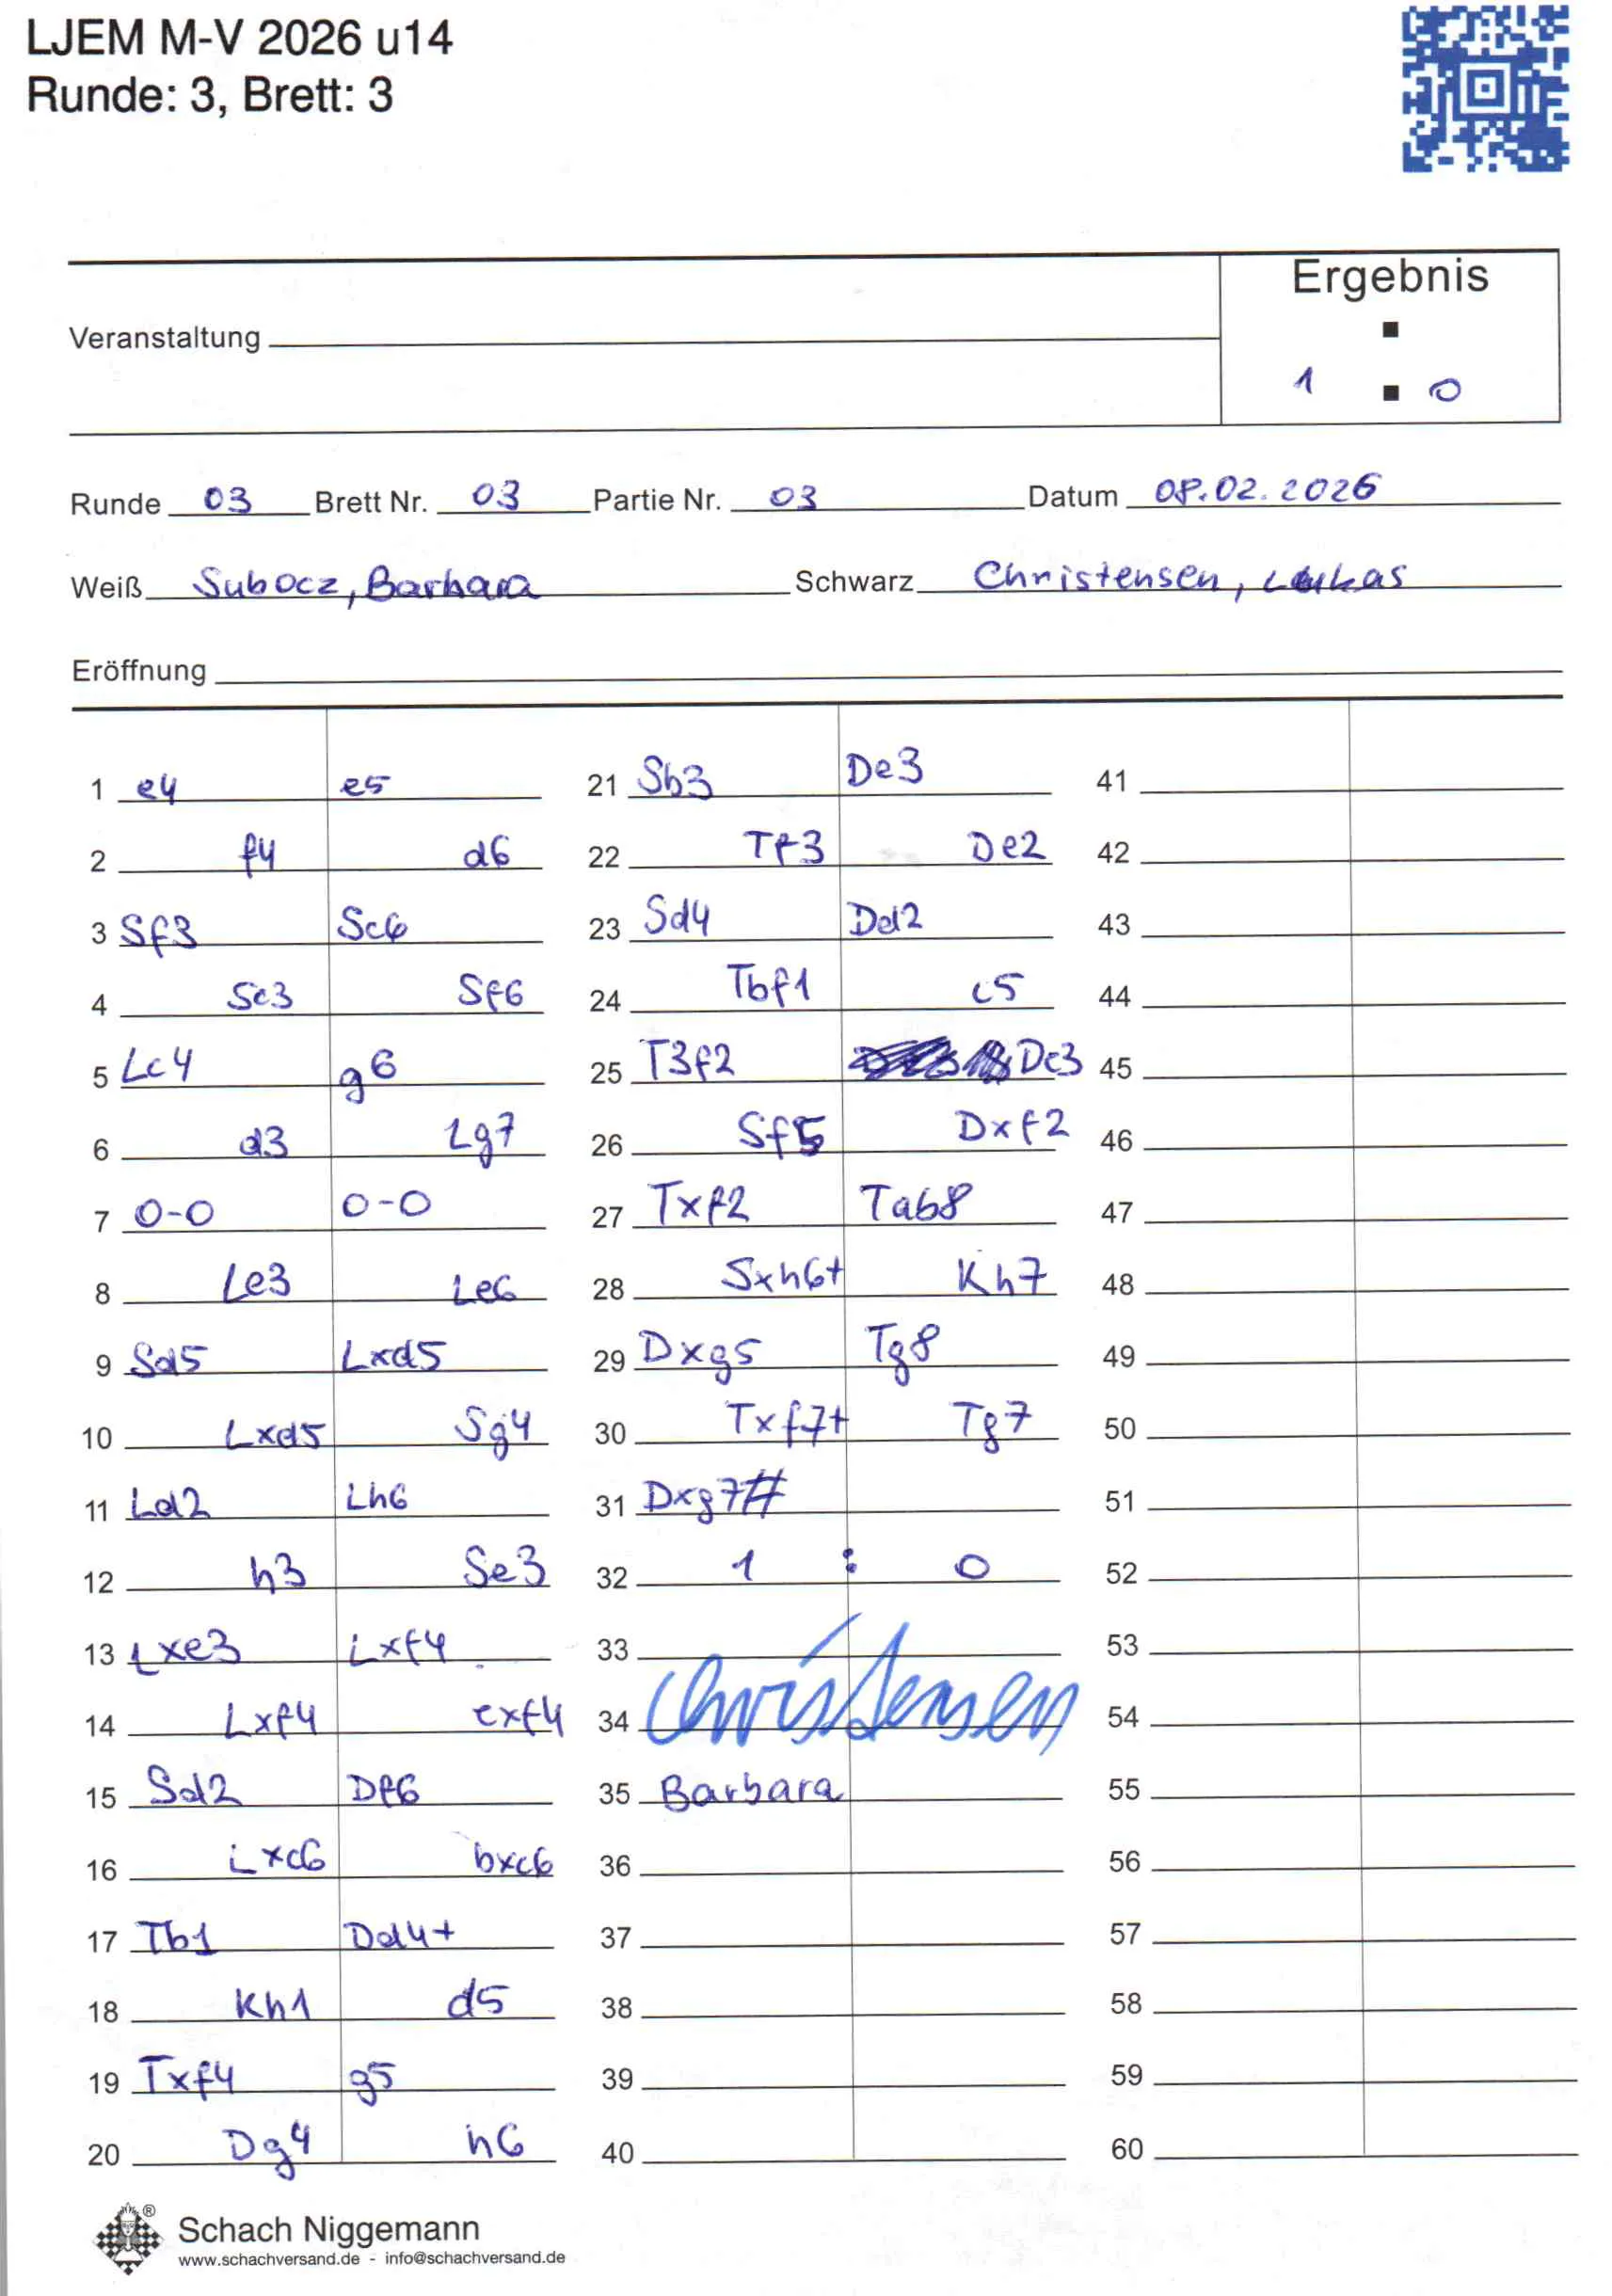 LJEM M-V 2026 u14
Runde: 3, Brett: 3
Ergebnis
Veranstaltung
1 : 0
Runde 03 Brett Nr. 03 Partie Nr. 03 Datum 08.02.2026
Weiß Subocz, Barbara Schwarz Christensen, Lukas
Eröffnung
1 e4 e5
2 f4 d6
3 Sf3 Sc6
4 Sc3 Sf6
5 Lc4 g6
6 d3 Lg7
7 0-0 0-0
8 Le3 Le6
9 Sd5 Lxd5
10 Lxd5 Sg4
11 Ld2 Lh6
12 h3 Se3
13 Lxe3 Lxf4
14 Lxf4 exf4
15 Sd2 Df6
16 Lxc6 bxc6
17 Tb1 Dd4+
18 Kh1 d5
19 Txf4 g5
20 Dg4 h6
21 Sb3 De3
22 Tf3 De2
23 Sd4 Dd2
24 Tbf1 c5
25 T3f2 Dc3
26 Sf5 Dxf2
27 Txf2 Tab8
28 Sxh6+ Kh7
29 Dxg5 Tg8
30 Txf7+ Tg7
31 Dxg7#
32 1 : 0
33
34 Christensen
35 Barbara
36
37
38
39
40
41
42
43
44
45
46
47
48
49
50
51
52
53
54
55
56
57
58
59
60
Schach Niggemann
www.schachversand.de - info@schachversand.de